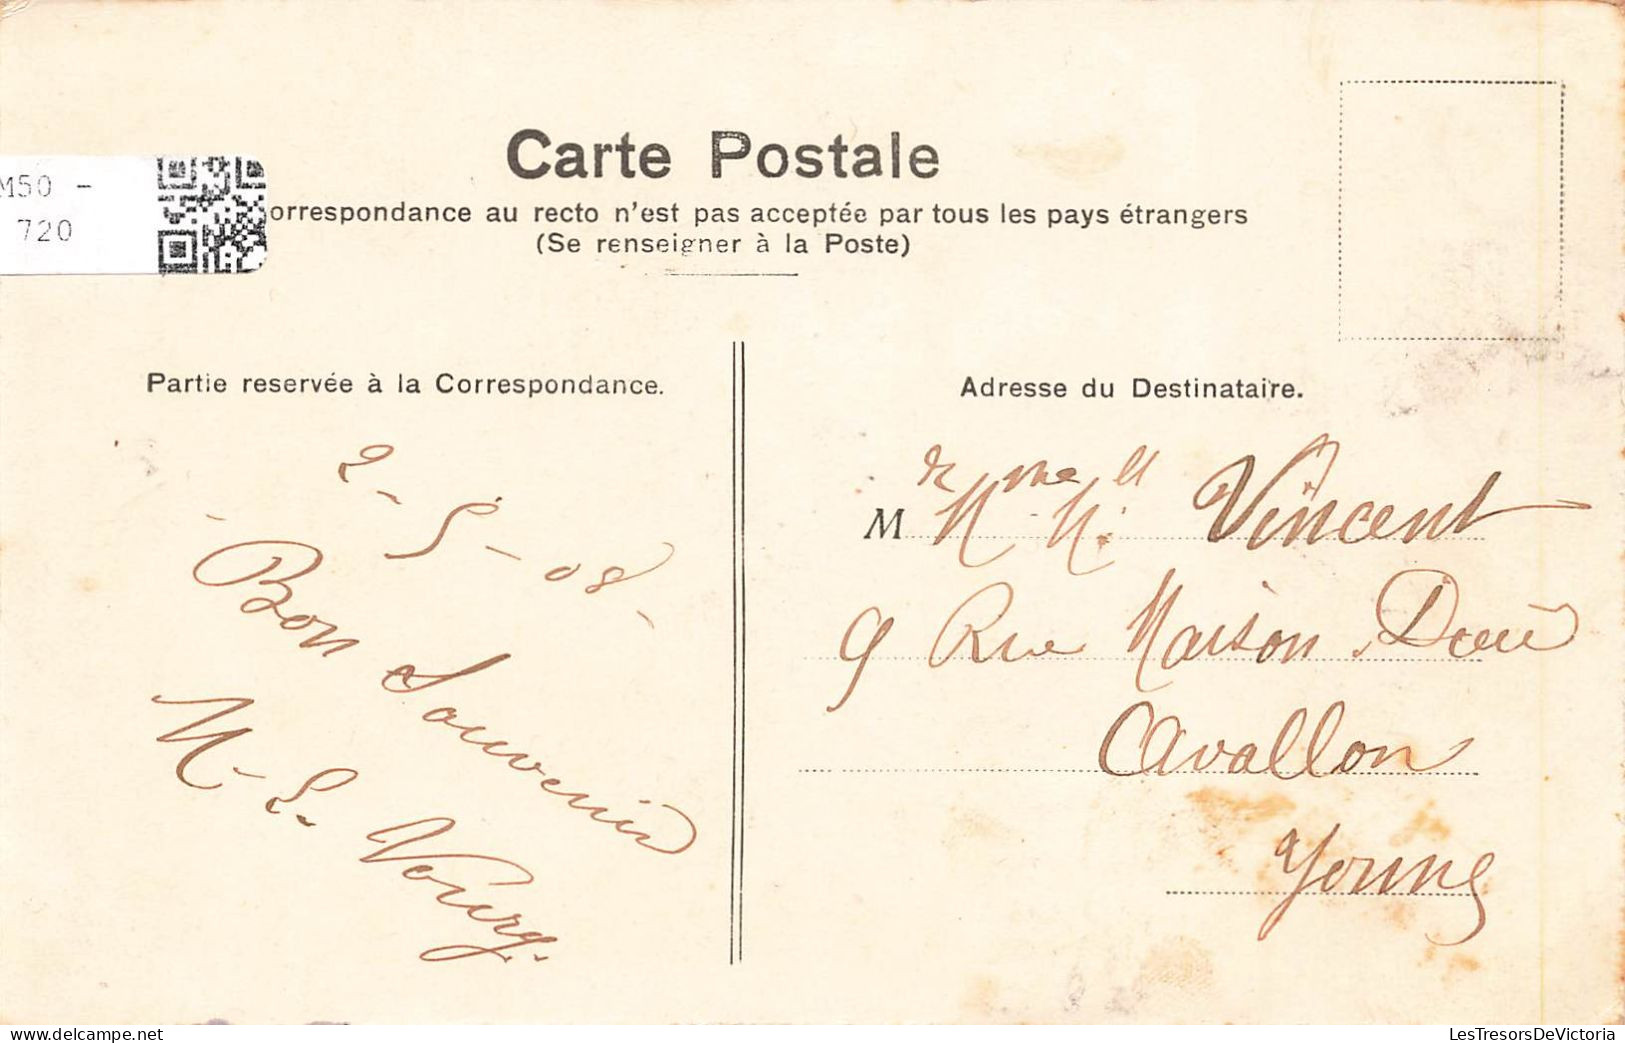 Carte Postale
orrespondance au recto n'est pas acceptée par tous les pays étrangers
(Se renseigner à la Poste)
M50 -
720
Partie reservée à la Correspondance.
2-5-08-
Bon Souvenir
M-L. Noury.
Adresse du Destinataire.
M Mr Mme Mell Vincent
9 Rue Maison Dieu
Avallon
Yonne
LesTresorsDeVictoria